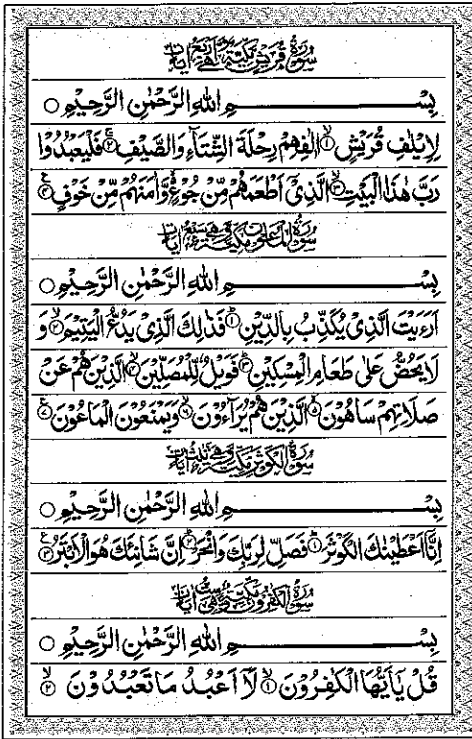 سورة قريش مكية وهي أربع آيات
بِسْمِ اللهِ الرَّحْمٰنِ الرَّحِيْمِ ○
لِاِيْلٰفِ قُرَيْشٍ ۙ﴿۱﴾ اٖلٰفِهِمْ رِحْلَةَ الشِّتَآءِ وَالصَّيْفِ ۚ﴿۲﴾ فَلْيَعْبُدُوْا
رَبَّ هٰذَا الْبَيْتِ ۙ﴿۳﴾ الَّذِيْۤ اَطْعَمَهُمْ مِّنْ جُوْعٍ ۙ وَّاٰمَنَهُمْ مِّنْ خَوْفٍ ﴿۴﴾
سورة الماعون مكية وهي سبع آيات
بِسْمِ اللهِ الرَّحْمٰنِ الرَّحِيْمِ ○
اَرَءَيْتَ الَّذِيْ يُكَذِّبُ بِالدِّيْنِ ﴿۱﴾ فَذٰلِكَ الَّذِيْ يَدُعُّ الْيَتِيْمَ ۙ﴿۲﴾ وَ
لَا يَحُضُّ عَلٰى طَعَامِ الْمِسْكِيْنِ ﴿۳﴾ فَوَيْلٌ لِّلْمُصَلِّيْنَ ۙ﴿۴﴾ الَّذِيْنَ هُمْ عَنْ
صَلَاتِهِمْ سَاهُوْنَ ۙ﴿۵﴾ الَّذِيْنَ هُمْ يُرَآءُوْنَ ۙ﴿۶﴾ وَيَمْنَعُوْنَ الْمَاعُوْنَ ﴿۷﴾
سورة الكوثر مكية وهي ثلث آيات
بِسْمِ اللهِ الرَّحْمٰنِ الرَّحِيْمِ ○
اِنَّاۤ اَعْطَيْنٰكَ الْكَوْثَرَ ﴿۱﴾ فَصَلِّ لِرَبِّكَ وَانْحَرْ ﴿۲﴾ اِنَّ شَانِئَكَ هُوَ الْاَبْتَرُ ﴿۳﴾
سورة الكفرون مكية وهي ست آيات
بِسْمِ اللهِ الرَّحْمٰنِ الرَّحِيْمِ ○
قُلْ يٰۤاَيُّهَا الْكٰفِرُوْنَ ۙ﴿۱﴾ لَاۤ اَعْبُدُ مَا تَعْبُدُوْنَ ۙ﴿۲﴾